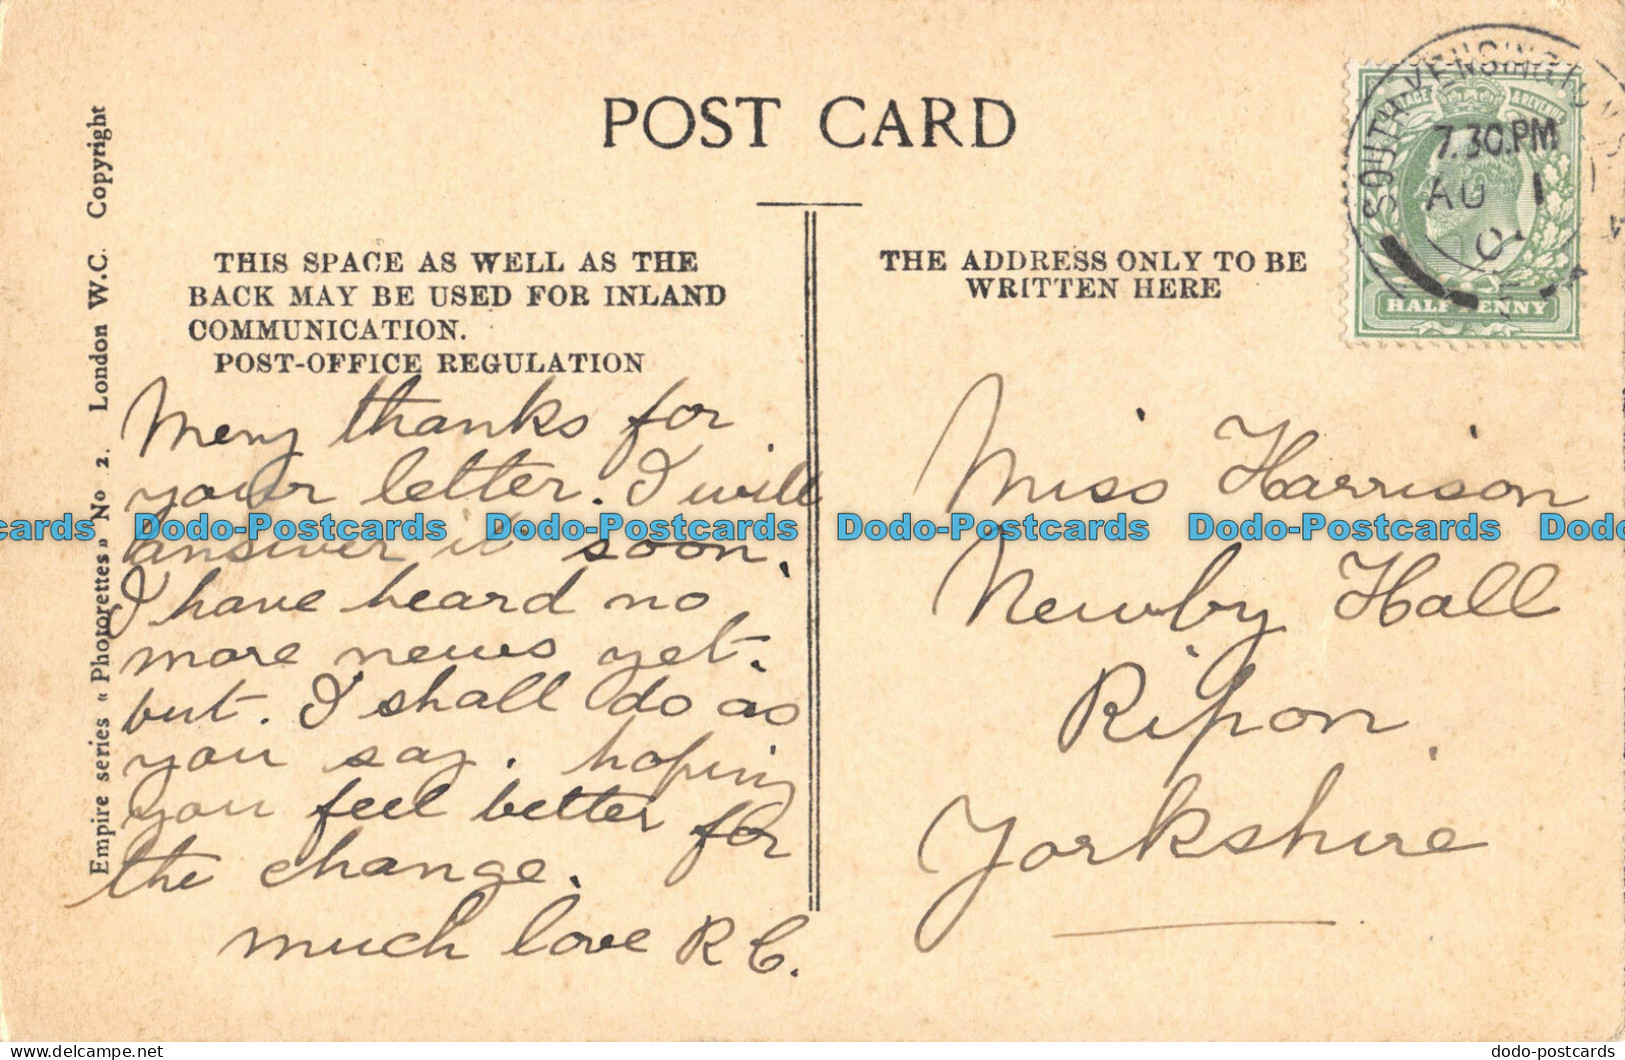 POST CARD
THIS SPACE AS WELL AS THE
BACK MAY BE USED FOR INLAND
COMMUNICATION.
POST-OFFICE REGULATION
THE ADDRESS ONLY TO BE
WRITTEN HERE
SOUTH KENSINGTON
7.30.PM
AU 1
HALFPENNY
Empire series « Photorettes » No 2. London W.C. Copyright
Many thanks for
your letter. I will
answer it soon.
I have heard no
more news yet.
but. I shall do as
you say. hoping
you feel better for
the change.
much love R C.
Miss Harrison
Newby Hall
Ripon.
Yorkshire
Dodo-Postcards Dodo-Postcards Dodo-Postcards Dodo-Postcards
www.delcampe.net
dodo-postcards